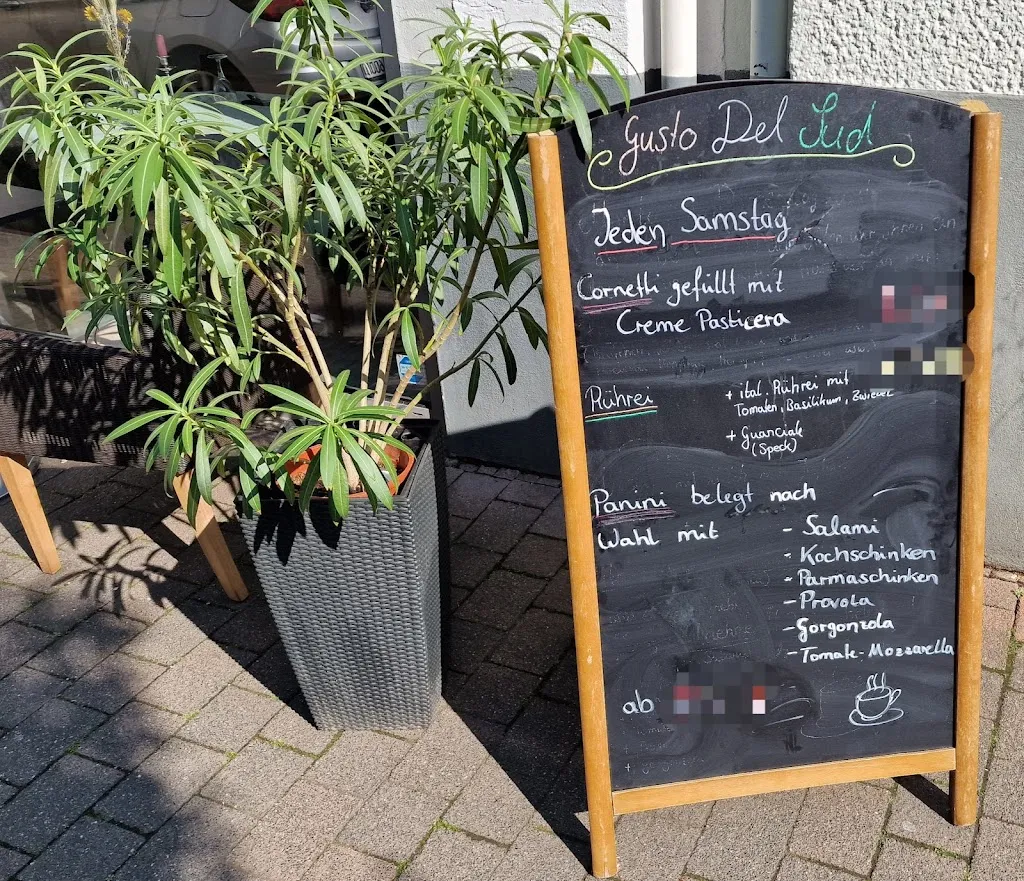 Gusto Del Sud
Jeden Samstag
Cornetti gefüllt mit
Creme Pasticera
Rührei
+ ital. Rührei mit
Tomaten, Basilikum, Zwiebel
+ Guanciale
(Speck)
Panini belegt nach
Wahl mit
- Salami
- Kochschinken
- Parmaschinken
- Provola
- Gorgonzola
- Tomate-Mozzarella
ab